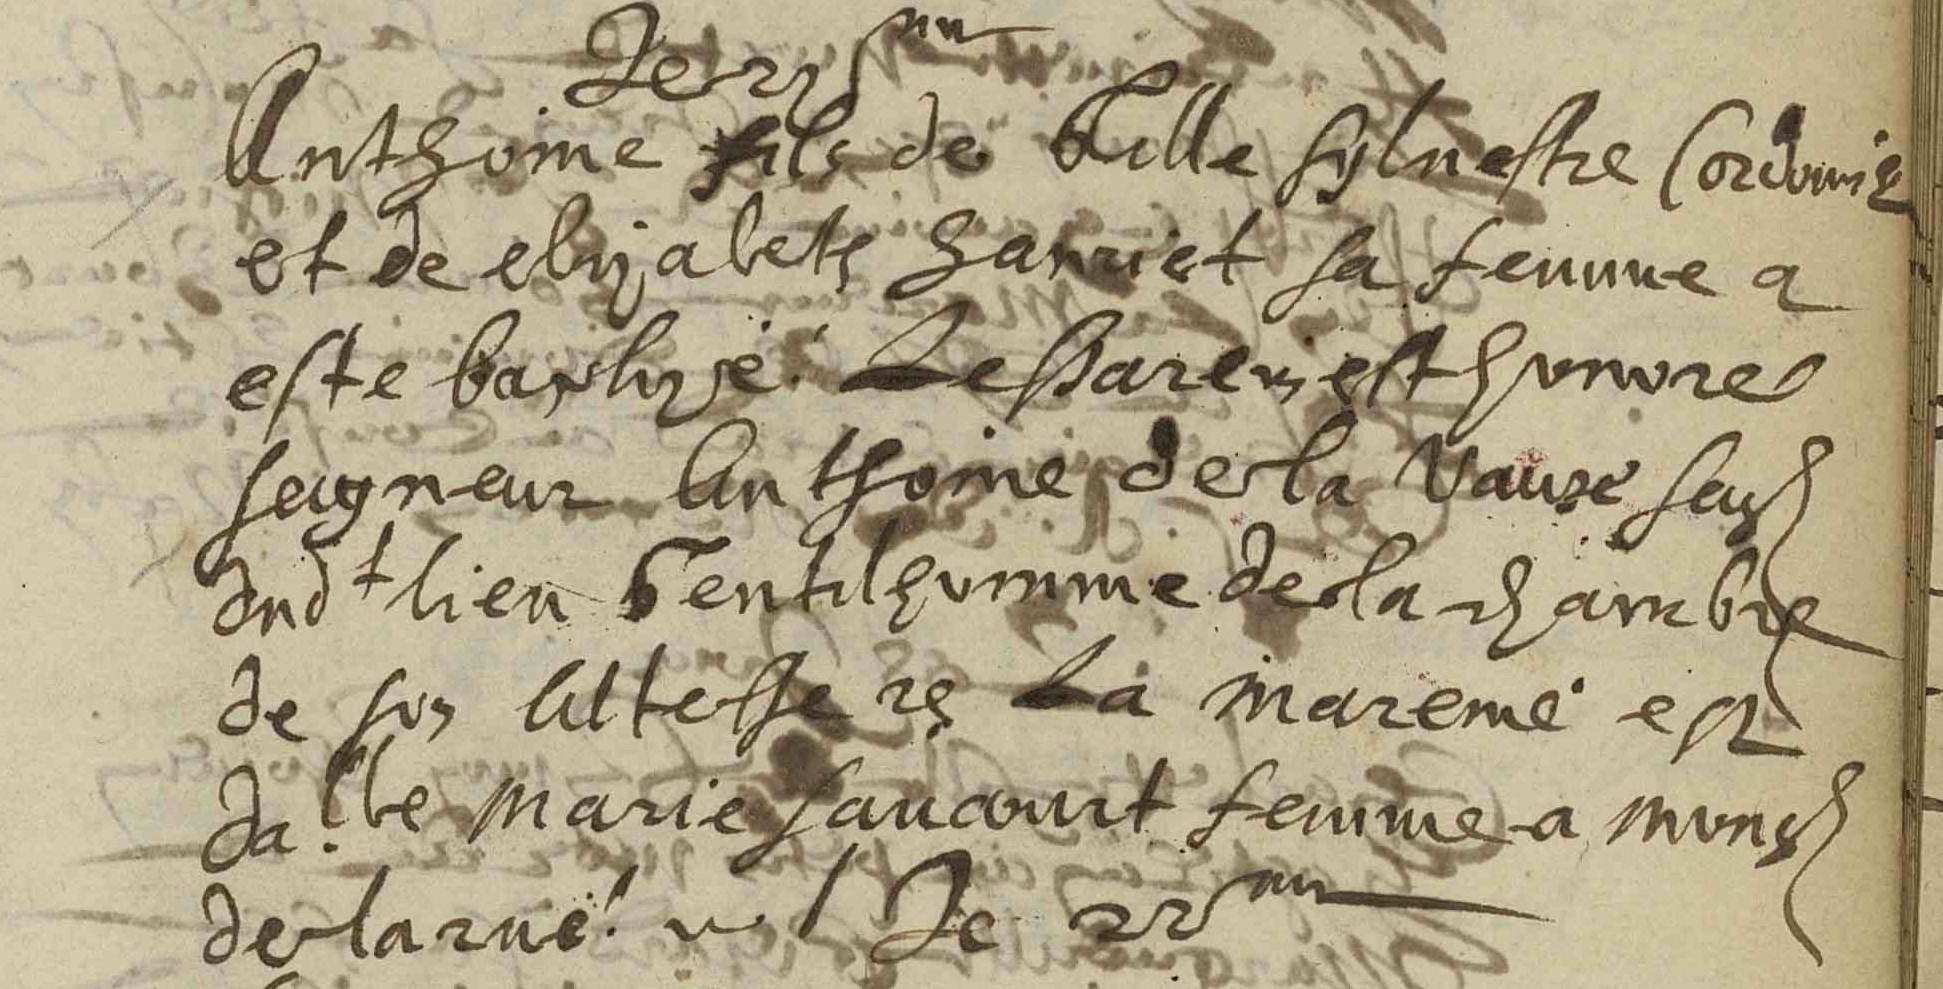 Anthoine fils de Gille sylvestre Cordonnie
et de elizabeth hanriet sa femme a
este baptize. Le parein est honore
seigneur Anthoine de la Vause seig
dud t lieu Gentilhomme de la chambre
de son Altesse La mareine est
da lle marie saucourt femme a mons
de la rue Le